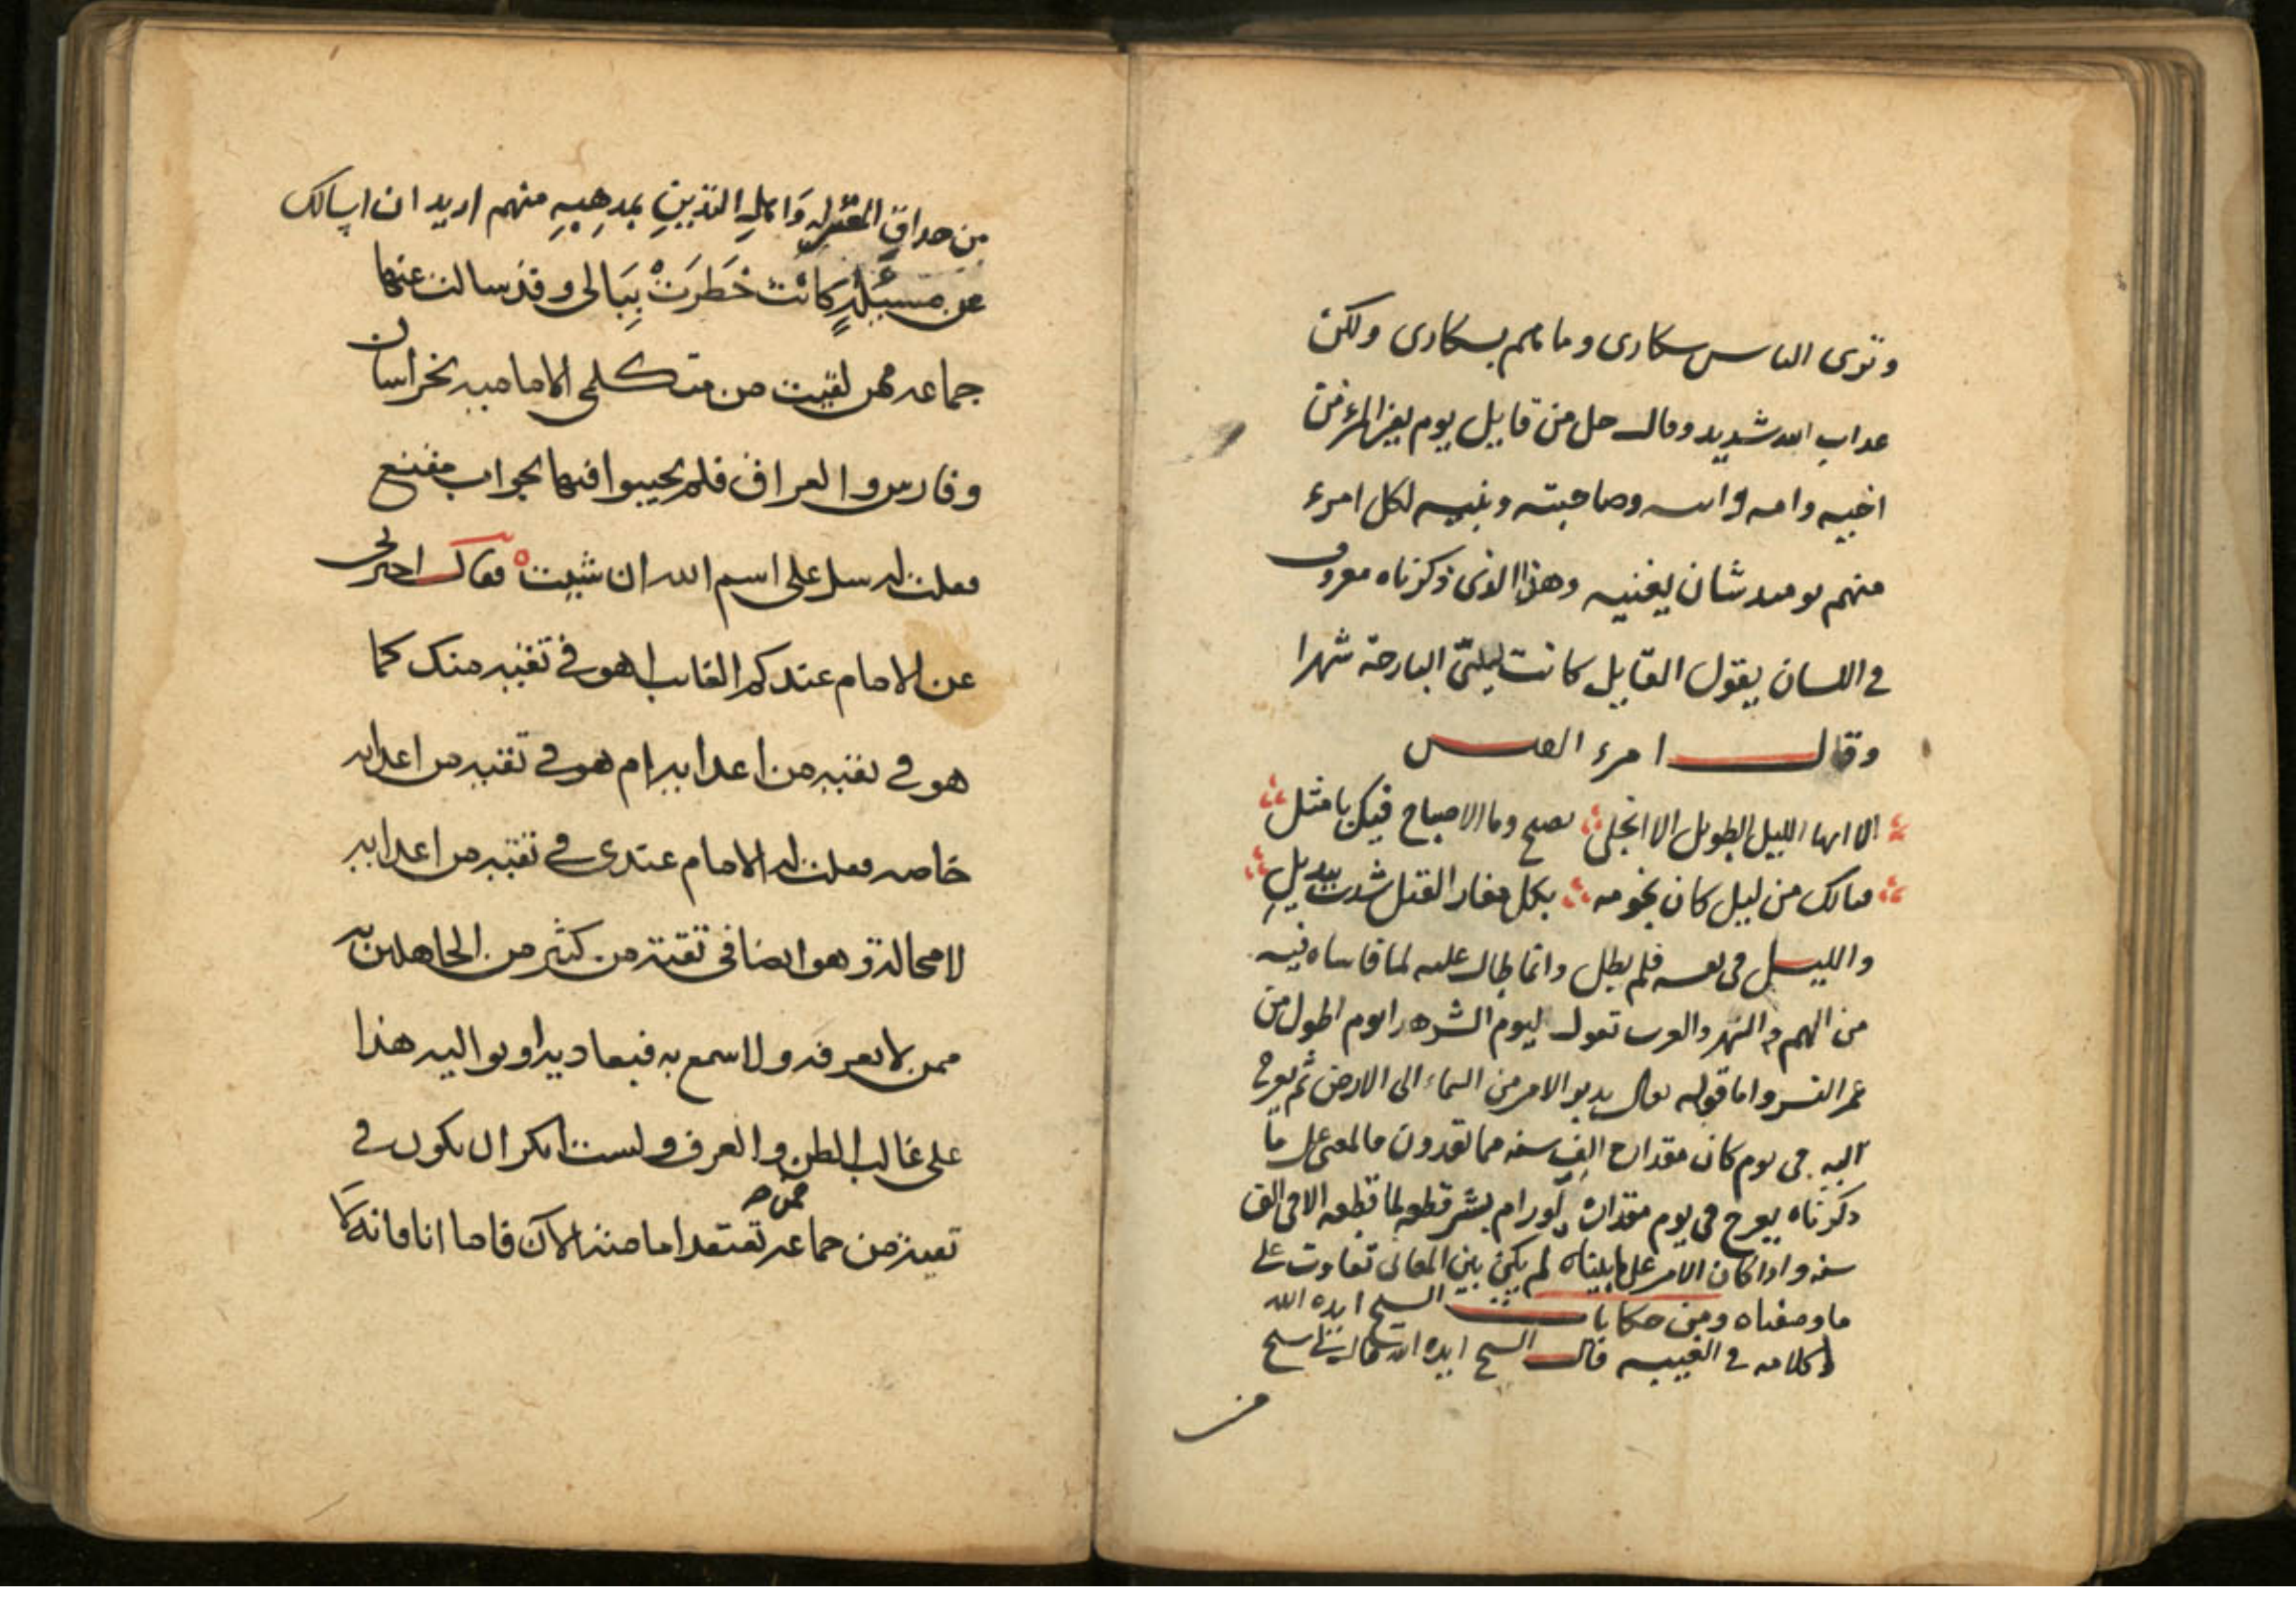 وترى الناس سكارى وما هم بسكارى ولكن
عداب الله شديد وقال جل من قايل يوم يفر المرء من
اخيه وامه وابيه وصاحبته وبنيه لكل امرء
منهم يومىد شان يغنيه وهذا الذى ذكرناه معروف
في اللسان يقول القايل كانت ليلتي البارحة شهرا
وقال امرء القيس
الا ايها الليل الطويل الا انجلى بصبح وما الاصباح فيك بامثل
فيالك من ليل كان نجومه بكل مغار الفتل شدت بيذبل
والليل في نفسه فلم يطل وانما طال عليه لما قاساه فيه
من الهم والسهر والعرب تقول ليوم الشر هدا يوم اطول من
عمر النسر واما قوله تعالى يدبر الامر من السماء الى الارض ثم يعرج
اليه في يوم كان مقداره الف سنه مما تعدون فالمعنى على ما
ذكرناه يعرج في يوم مقداره لو رام بشر قطعه لما قطعه الا في الف
سنه واذا كان الامر على ما بيناه لم يكن بين المعانى تفاوت على
ما وصفناه ومن حكايات الشيخ ايده الله
وكلامه في الغيبه قال الشيخ ايده الله قال لي شيخ
من
من حداق المعتزله واهل التدين بمدهبه منهم اريد ان اسالك
عن مسئلة كانت خطرت ببالى وقد سالت عنها
جماعه ممن لقيت من متكلمى الاماميه بخراسان
وفارس والعراق فلم يجيبوا فيها بجواب مقنع
فقلت له سل على اسم الله ان شيت فقال اخبرنى
عن الامام عندكم الغايب اهو في تقيه منك كما
هو في تقيه من اعدايه ام هو في تقيه من اعدايه
خاصه فقلت له الامام عندى في تقيه من اعدايه
لا محالة وهو ايضا في تقية من كثير من الجاهلين به
ممن لا يعرفه ولا سمع به فيعاديه او يواليه هذا
على غالب الظن والعرف ولست انكر ان يكون في
تقية من جماعه ممن تعتقد امامته الآن فاما انا فانه لا